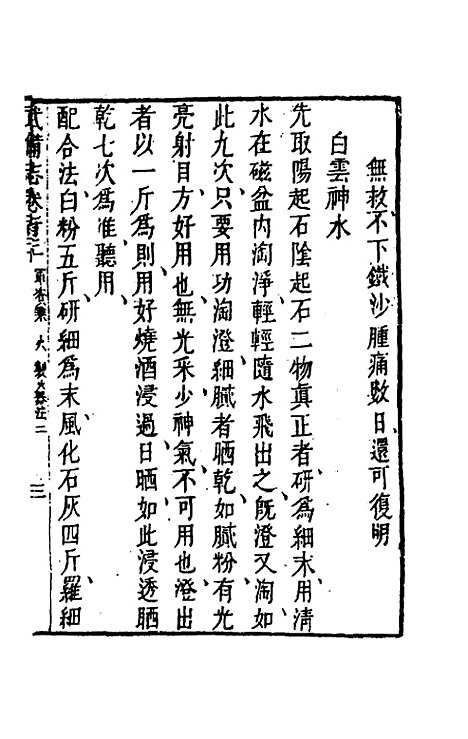 無救不下鐵沙腫痛數日還可復明
白雲神水
先取陽起石陰起石二物真正者研為細末用清
水在磁盆內淘淨輕輕隨水飛出之既澄又淘如
此九次只要用功淘澄細膩者晒乾如膩粉有光
亮射目方好用也無光采少神氣不可用也澄出
者以一斤為則用好燒酒浸過日晒如此浸透晒
乾七次為准聽用
配合法白粉五斤研細為末風化石灰四斤羅細
武備志卷 軍資乘 火 製火器法二 三